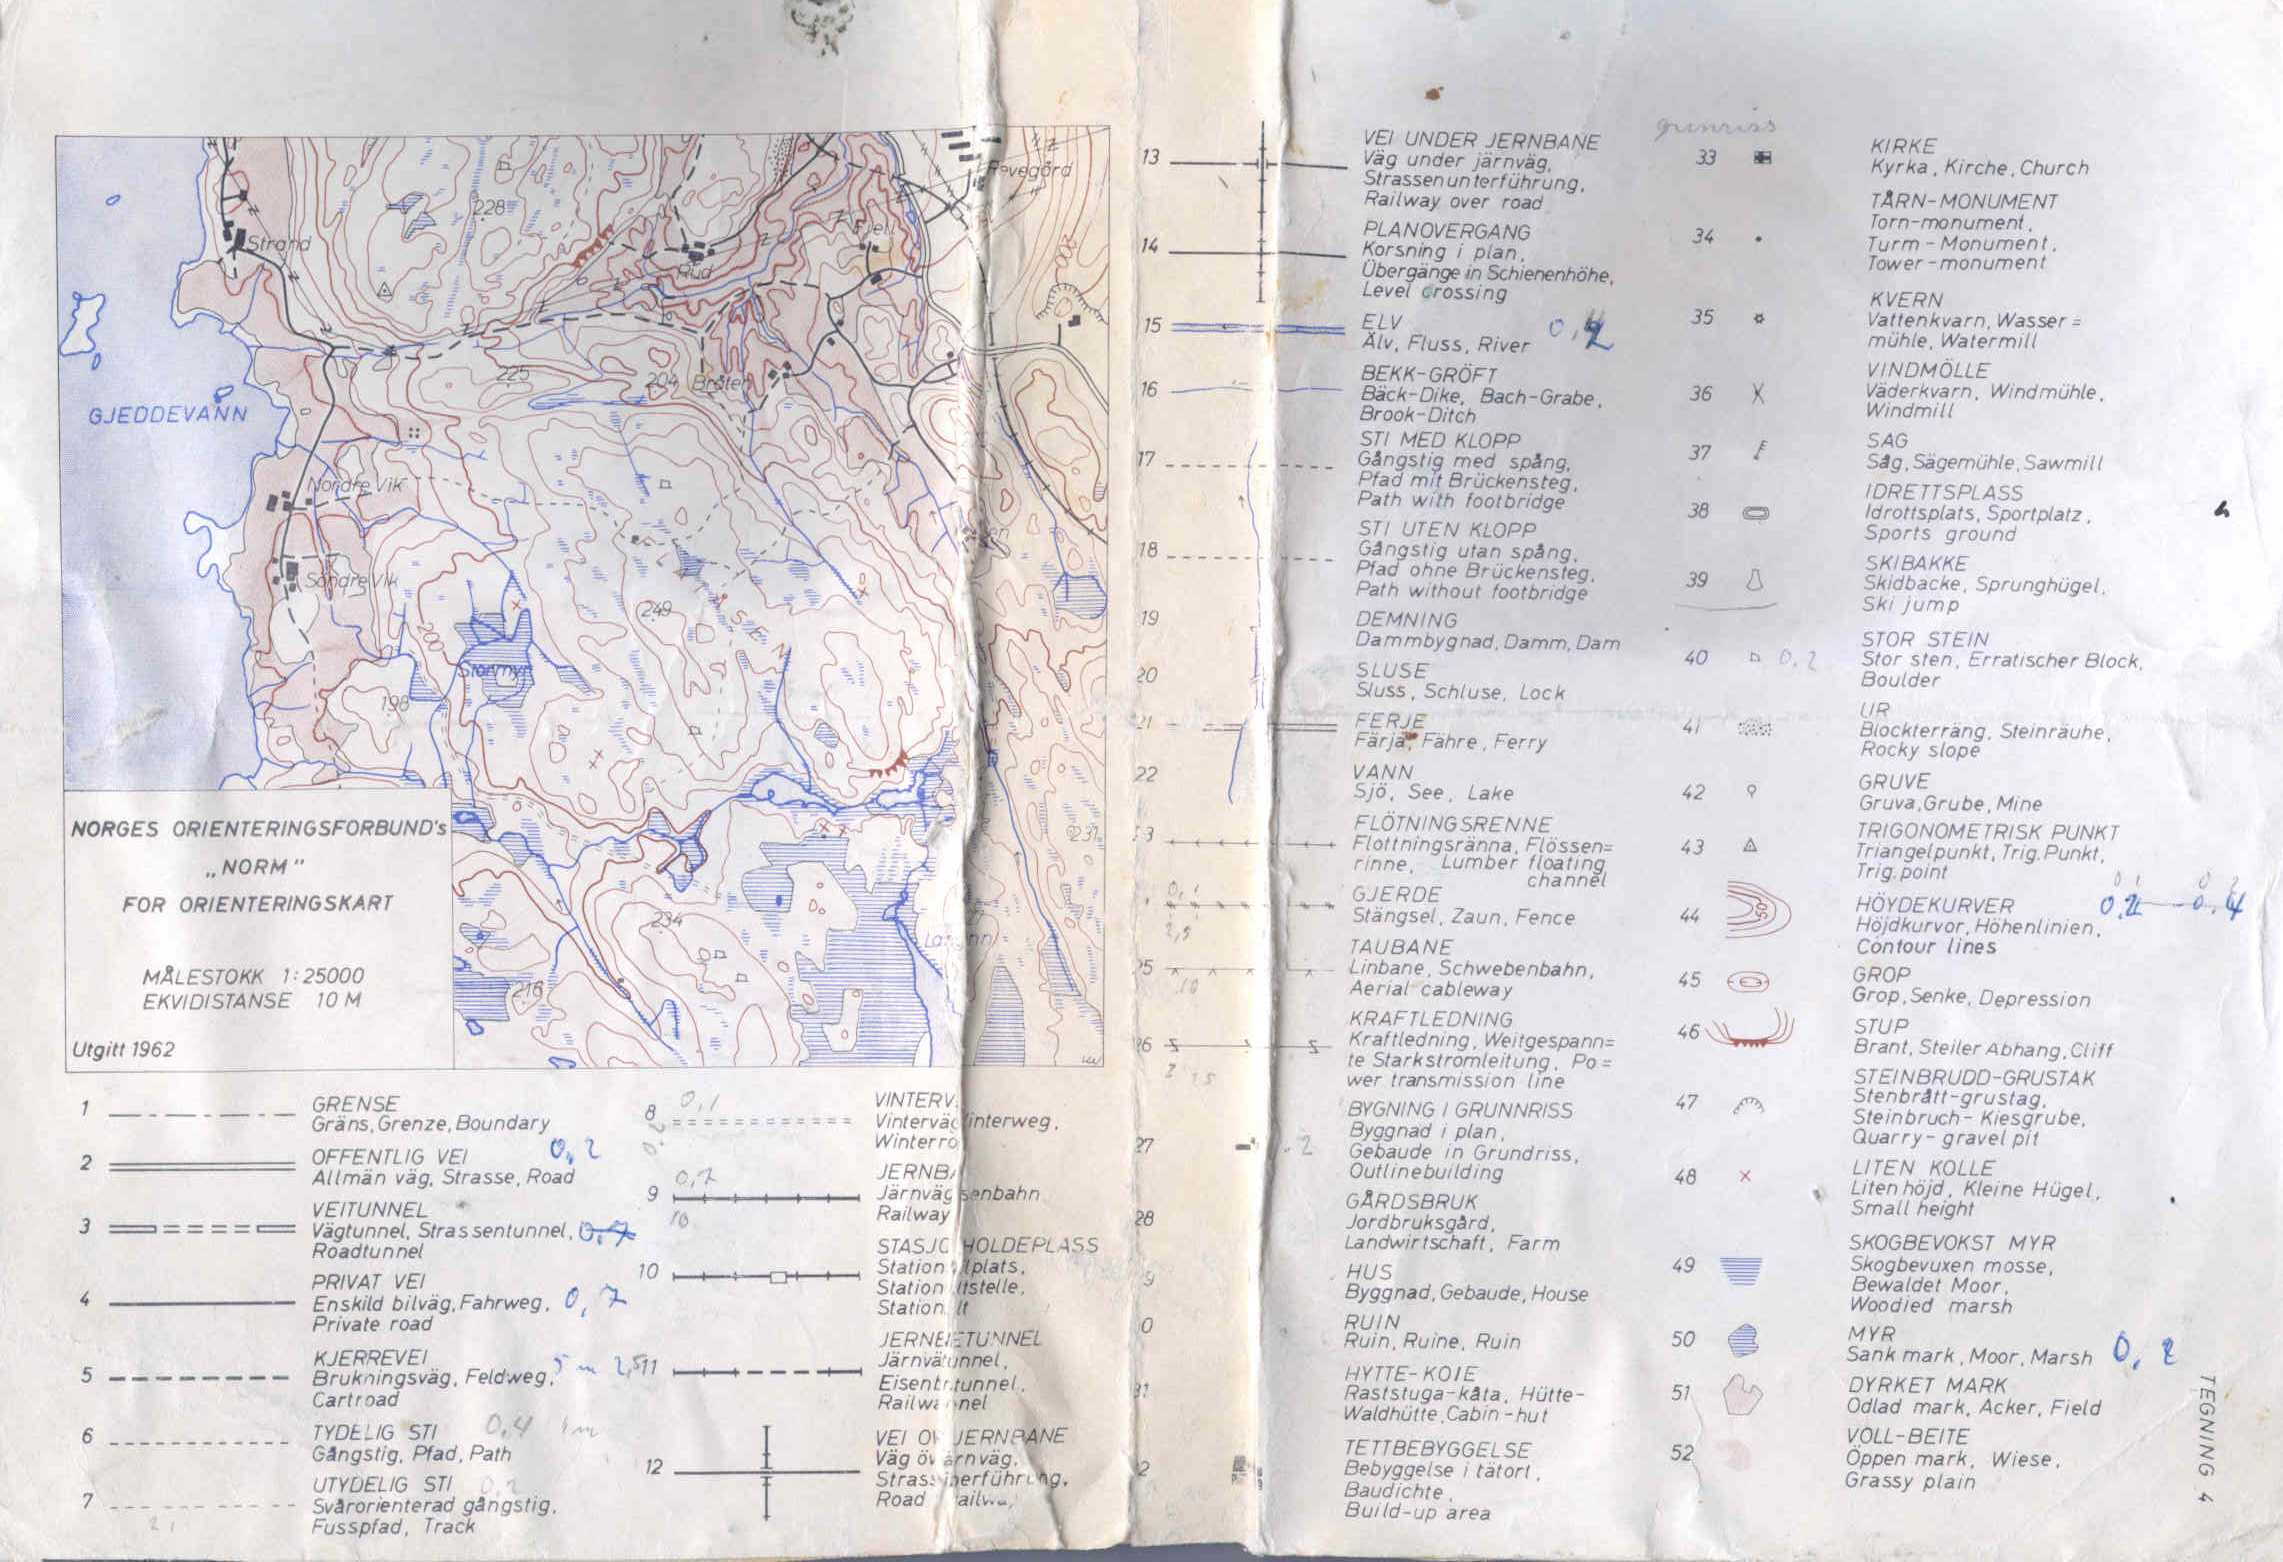 228
Strand
Rud
Fjell
Revegård
200
GJEDDEVANN
225
204
Bråten
Nordre Vik
Söndre Vik
FLATÅSEN
249
200
Stormyr
198
237
234
216
NORGES ORIENTERINGSFORBUND's
„NORM"
FOR ORIENTERINGSKART
MÅLESTOKK 1:25000
EKVIDISTANSE 10 M
Utgitt 1962
1 GRENSE
Gräns, Grenze, Boundary
2 OFFENTLIG VEI 0,2
Allmän väg, Strasse, Road
3 VEITUNNEL
Vägtunnel, Strassentunnel, 0,7
Roadtunnel
4 PRIVAT VEI
Enskild bilväg, Fahrweg, 0,7
Private road
5 KJERREVEI
Brukningsväg, Feldweg,
Cartroad
6 TYDELIG STI 0,4 1m
Gångstig, Pfad, Path
7 UTYDELIG STI 0,2
Svårorienterad gångstig,
Fusspfad, Track
8 0,1 VINTERV
Vinterväg interweg,
Winterro
9 0,7 JERNBA
10 Järnväg senbahn
Railway
10 STASJO HOLDEPLASS
Station lplats,
Station ltstelle,
Station lt
11 JERNB ETUNNEL
Järnvä tunnel,
Eisenb tunnel,
Railwa nnel
12 VEI OV JERNBANE
Väg öv ärnväg,
Strass berführung,
Road railwa
13 VEI UNDER JERNBANE
Väg under järnväg,
Strassenunterführung,
Railway over road
14 PLANOVERGANG
Korsning i plan,
Übergänge in Schienenhöhe,
Level crossing
15 ELV
Älv, Fluss, River
16 BEKK-GRÖFT
Bäck-Dike, Bach-Grabe,
Brook-Ditch
17 STI MED KLOPP
Gångstig med spång,
Pfad mit Brückensteg,
Path with footbridge
18 STI UTEN KLOPP
Gångstig utan spång,
Pfad ohne Brückensteg,
Path without footbridge
19 DEMNING
Dammbygnad, Damm, Dam
20 SLUSE
Sluss, Schluse, Lock
21 FERJE
Färja, Fähre, Ferry
22 VANN
Sjö, See, Lake
3 FLÖTNINGSRENNE
Flottningsränna, Flössen=
rinne, Lumber floating
channel
GJERDE
Stängsel, Zaun, Fence
25 TAUBANE
Linbane, Schwebenbahn,
Aerial cableway
26 KRAFTLEDNING
Kraftledning, Weitgespann=
te Starkstromleitung, Po=
wer transmission line
27 BYGNING I GRUNNRISS
Byggnad i plan,
Gebaude in Grundriss,
Outlinebuilding
28 GÅRDSBRUK
Jordbruksgård,
Landwirtschaft, Farm
9 HUS
Byggnad, Gebaude, House
0 RUIN
Ruin, Ruine, Ruin
31 HYTTE-KOIE
Raststuga-kåta, Hütte-
Waldhütte, Cabin-hut
2 TETTBEBYGGELSE
Bebyggelse i tätort,
Baudichte,
Build-up area
grunriss
33 KIRKE
Kyrka, Kirche, Church
34 TÅRN-MONUMENT
Torn-monument,
Turm-Monument,
Tower-monument
35 KVERN
Vattenkvarn, Wasser=
mühle, Watermill
36 VINDMÖLLE
Väderkvarn, Windmühle,
Windmill
37 SAG
Såg, Sägemühle, Sawmill
38 IDRETTSPLASS
Idrottsplats, Sportplatz,
Sports ground
39 SKIBAKKE
Skidbacke, Sprunghügel,
Ski jump
40 0,2 STOR STEIN
Stor sten, Erratischer Block,
Boulder
41 UR
Blockterräng, Steinräuhe,
Rocky slope
42 GRUVE
Gruva, Grube, Mine
43 TRIGONOMETRISK PUNKT
Triangelpunkt, Trig. Punkt,
Trig. point
44 50 HÖYDEKURVER
Höjdkurvor, Höhenlinien,
Contour lines
45 GROP
Grop, Senke, Depression
46 STUP
Brant, Steiler Abhang, Cliff
47 STEINBRUDD-GRUSTAK
Stenbrått-grustag,
Steinbruch-Kiesgrube,
Quarry-gravel pit
48 LITEN KOLLE
Liten höjd, Kleine Hügel,
Small height
49 SKOGBEVOKST MYR
Skogbevuxen mosse,
Bewaldet Moor,
Woodied marsh
50 MYR
Sank mark, Moor, Marsh 0,2
51 DYRKET MARK
Odlad mark, Acker, Field
52 VOLL-BEITE
Öppen mark, Wiese,
Grassy plain
TEGNING 4